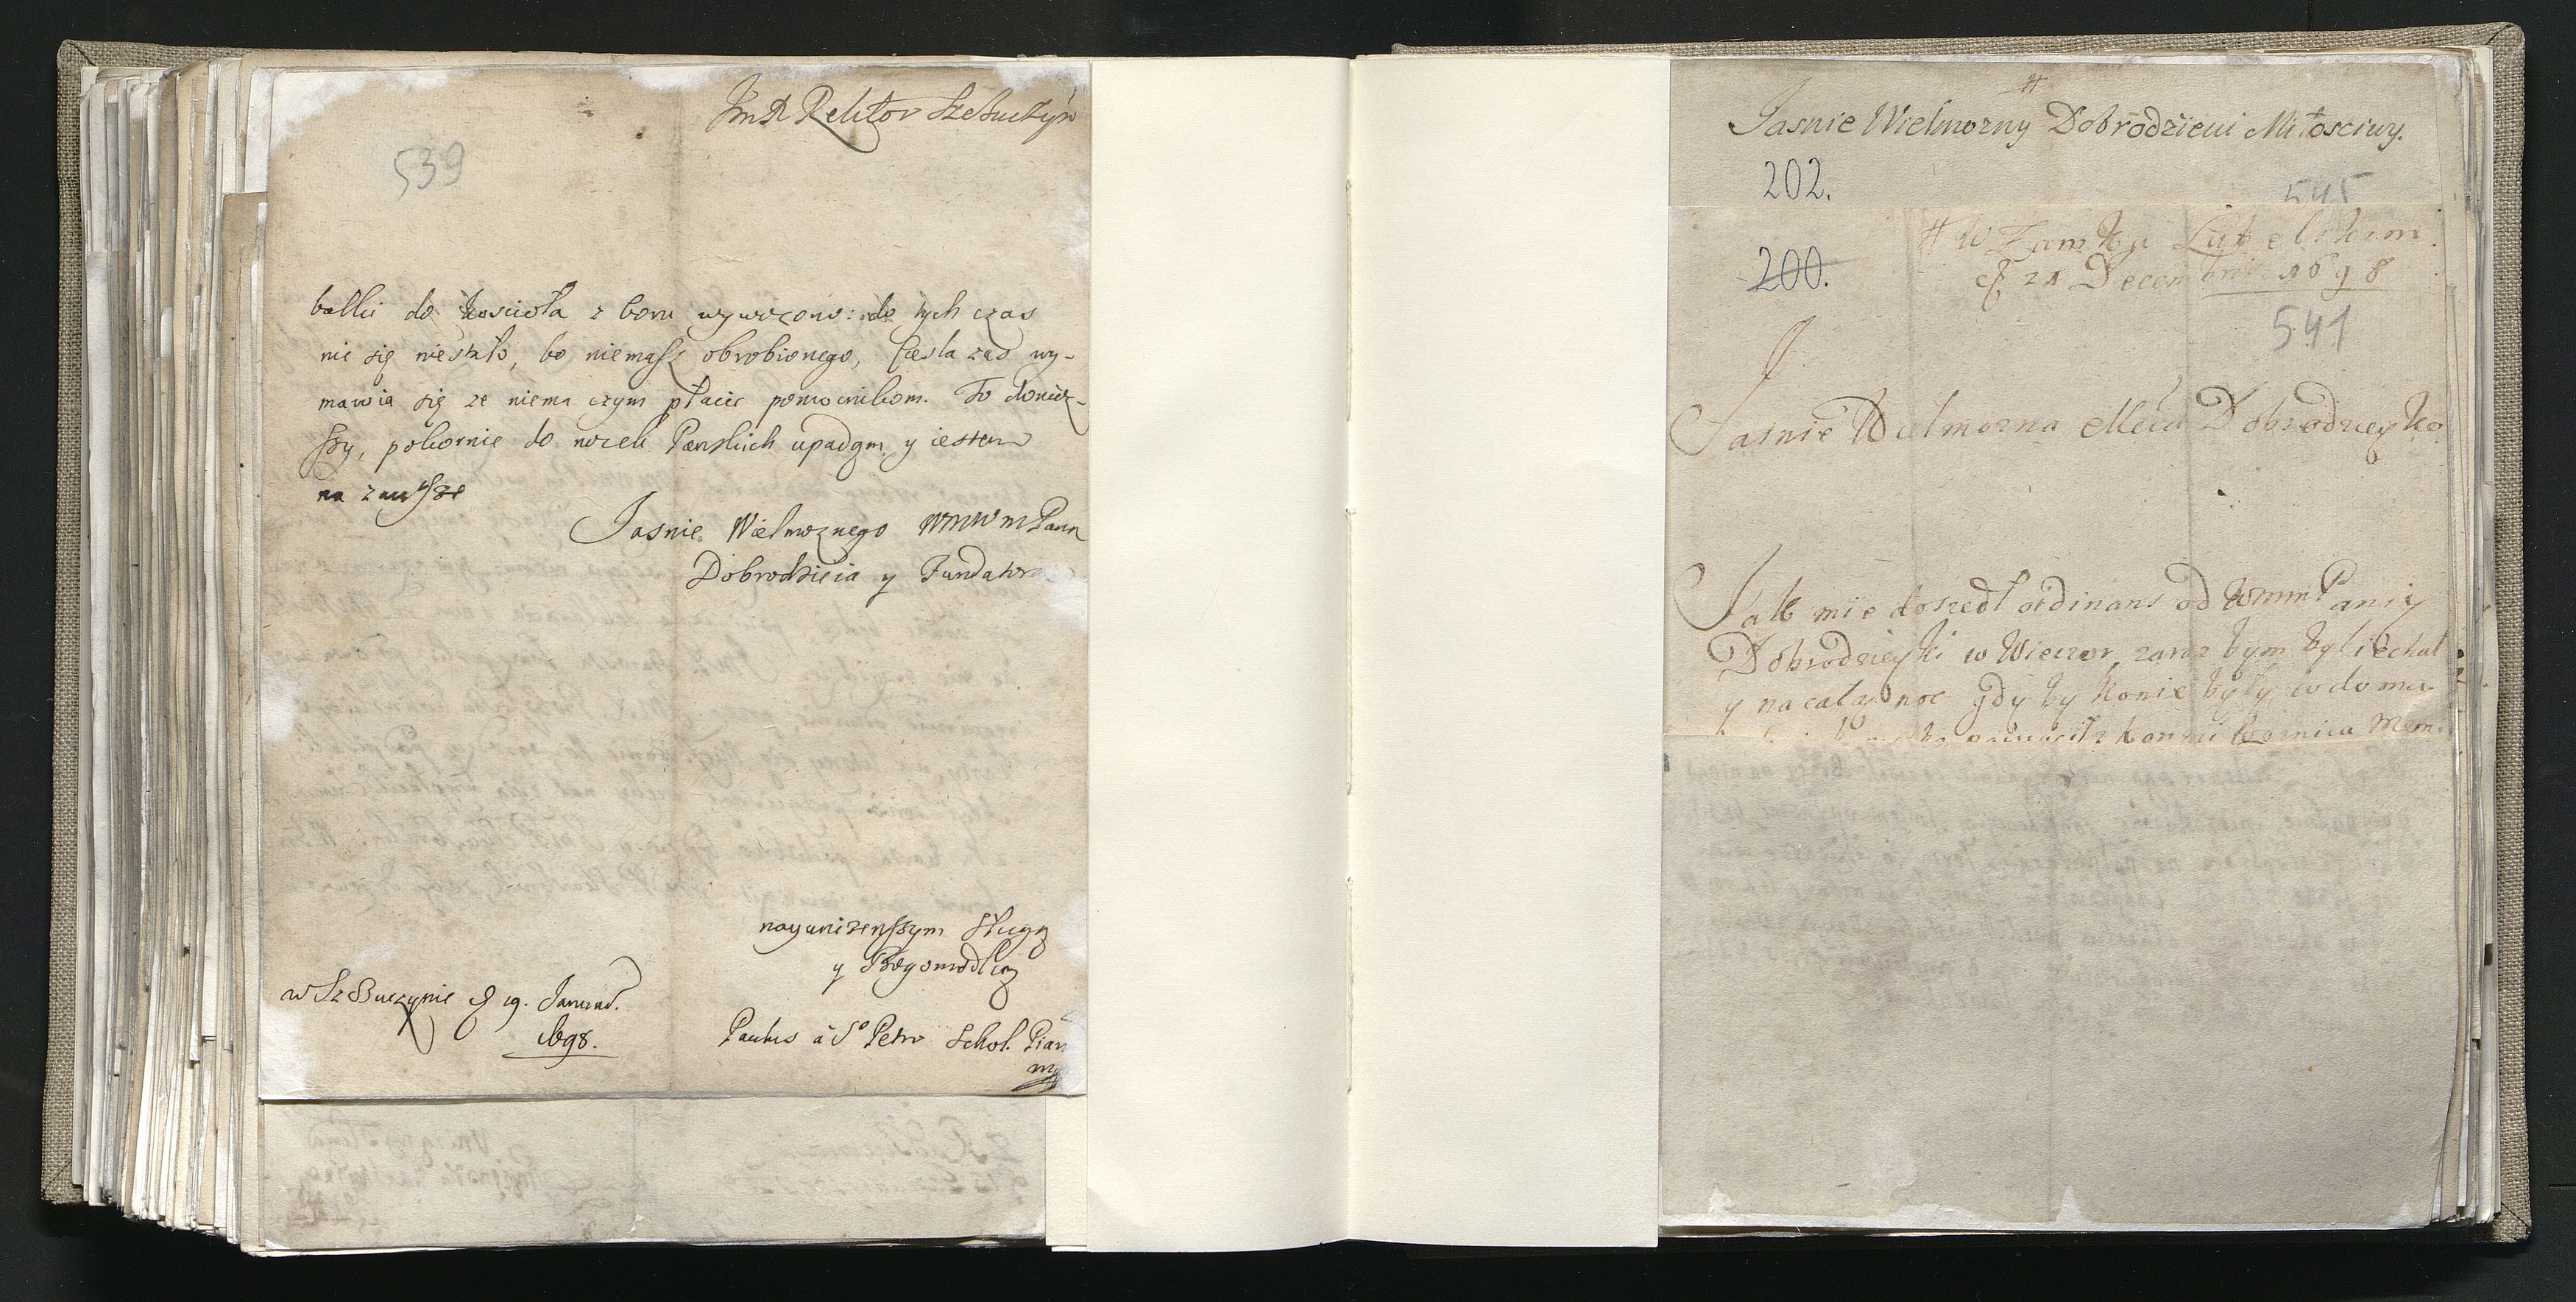 JmX Rektor Szczuczyn
539
balki do koscioła z boru wywozono: do tych czas
nic się nieszło, bo niemasz obrobionego, Ciesla zas wy-
mawia się ze niema czym płacic pomocnikom. To doniozs-
szy, pokornie do nozek Panskich upadam, y iestem
na zawsze
Jasnie Wielmoznego WMWM Pana
Dobrodzieia y Fundatora
nayunizenszym Sługą
y Bogomodlcą
w Szczuczynie d 19. Januar.
1698.
Paulus à S° Petro Schol. Piar
mp
#
Jasnie Wielmozny Dobrodzieiu Miłosciwy.
202.
545
200.
# w Zamku Lubelskim
d 21 Decembris 1698
541
J
Jasnie Wielmozna Mcia Dobrodzieyko
Jak mie doszedł ordinans od WMM Paniey
Dobrodzieyki w Wieczor, zaraz bym był iechał
y na całą noc gdy by konie były w domu
powrocił z konmi Woznica